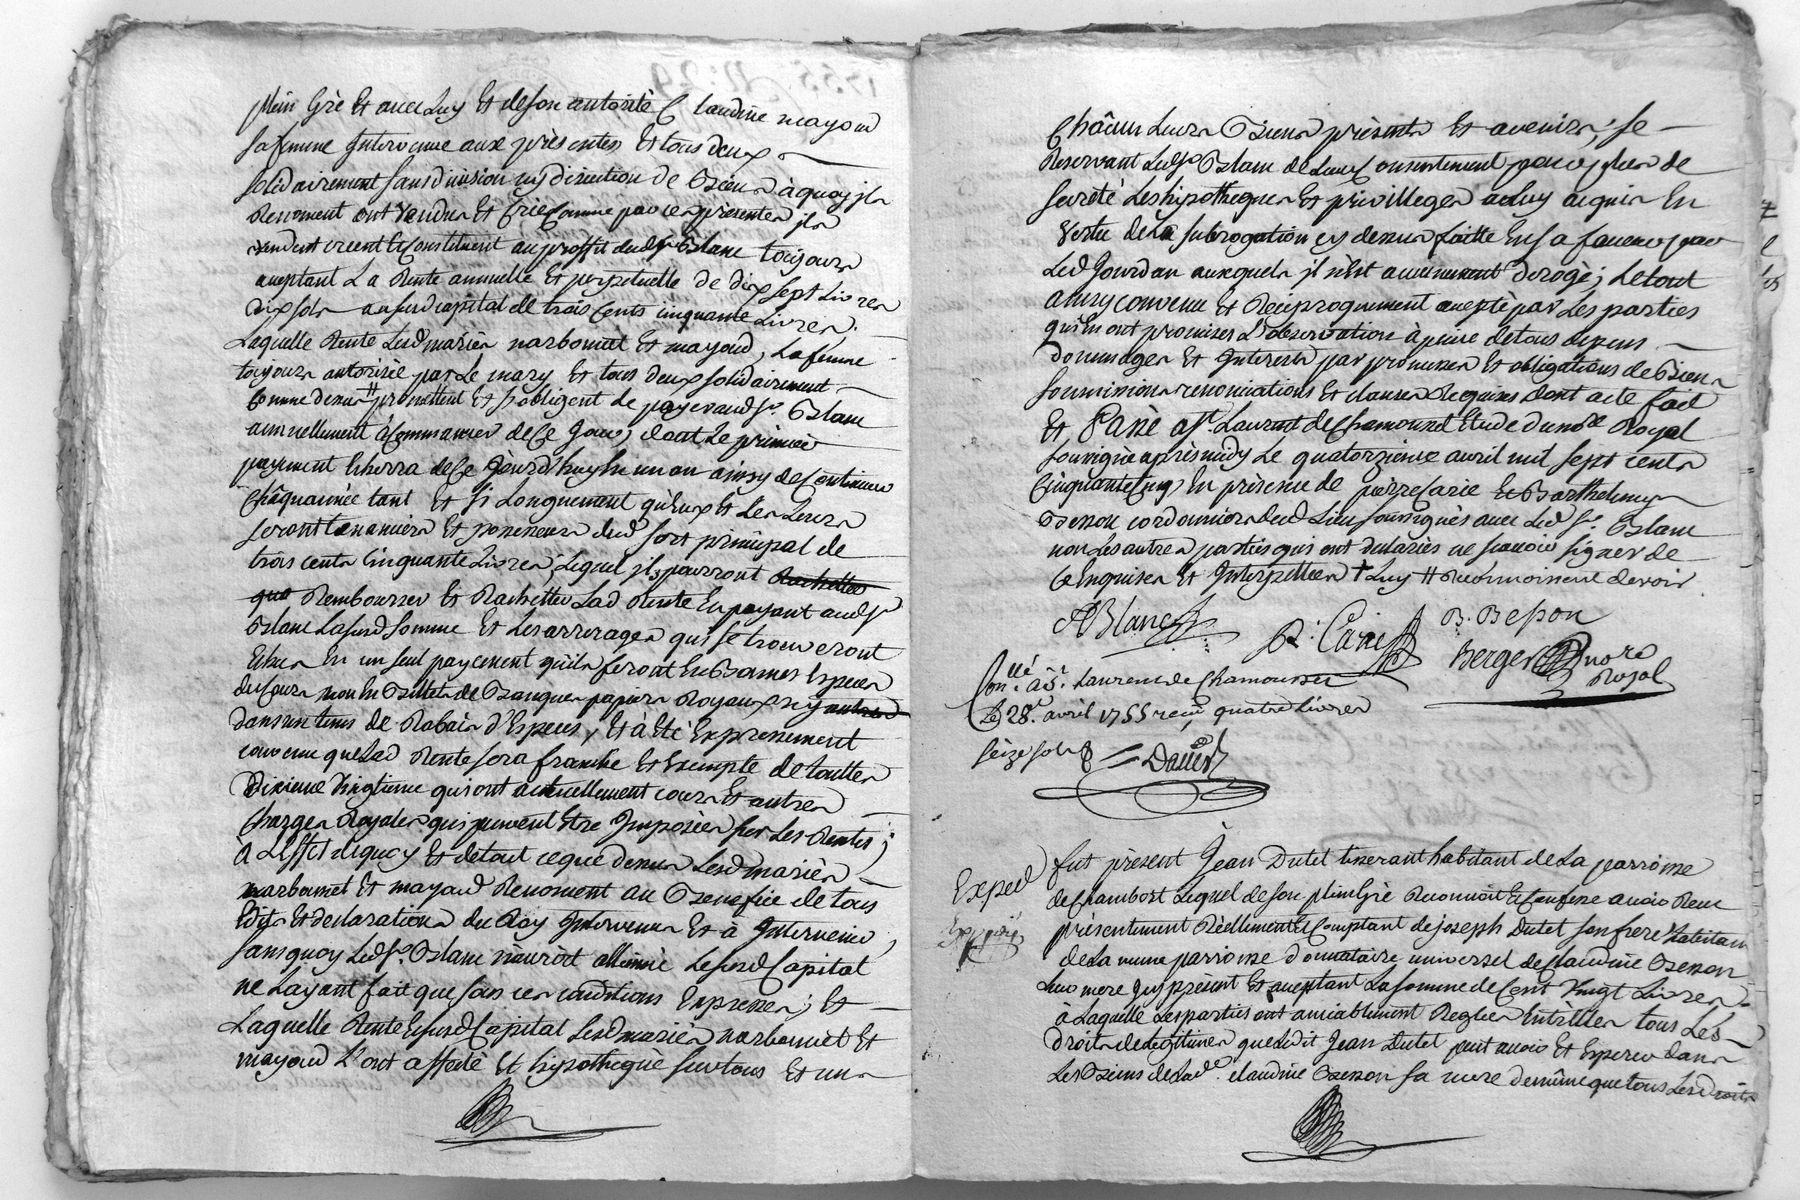 plein gré et avec luy et de son autorité Claudine mayoud
sa femme Intervenue aux présentes et tous deux
solidairement sans division ny discution de Biens à quoy ils
Renoncent ont vendu et Crée Comme par ces présentes ils
vendent créent et Constituent au proffit dudsr Blanc toujours
aceptant La Rente annuelle et perpetuelle de dix sept Livres
dix sols au susd capital de trois Cents cinquante Livres.
Laquelle Rente Lesd mariés narbonnet et mayoud, La femme
toujours autorisée par Le mary et tous deux solidairement
Comme dessus # promettent et s'obligent de payer aud sr Blanc
annuellement à Commancer de Ce Jour, dont Le premier
payment Echerra de Ce Jourd'huy En un an ainsy de Continuer
Châquannée tant et si Longuement qu'Eux et Les Leurs
seront tenanciers et possesseurs dud sort principal de
trois cents Cinquante Livres; Lequel ils pourront
que Rembourser et Rachetter Lad Rente En payant aud sr
Blanc La susd somme et Les arrerages qui se trouveront
Echus En un seul payement qu'ils feront En Bonnes Especes
du Cours non En Billets de Banque papiers Royaux ny autres
dans un tems de Rabais d'Especes, et à été Expressement
convenu que Lad Rente sera franche et Exempte de touttes
Dixieme Vingtieme qui ont actuellement cours et autres
Charges Royales qui peuvent Etre Imposées sur Les Rentes;
à L'Effet de quoy et de tout ce que dessus Lesd mariés
narbonnet et mayoud Renoncent au Benefice de tous
Edits et declarations du Roy Intervenus et à Intervenir,
sans quoy Led sr. Blanc n'auroit alliéné Le susd Capital
ne L'ayant fait que sous ces conditions Expresses; Et
Laquelle Rente et susd Capital Lesd mariés narbonnet et
mayoud L'ont affecté et hipothequé sur tous et uns
Châcuns Leurs Biens présents et avenirs, se
Reservant Led sr Blanc de Leur Consentement pour plus de
sureté Les hipotheques et privilleges a Luy acquis En
Vertu de La subrogation cy dessus faitte En sa faveur par
Led Jourdan auxquels il n'est aucunement derogé; Le tout
ainsy convenu et Reciproquement acepté par Les parties
qui en ont promises L'observation à peine de tous depens
dommages et Interets par promesses et obligations de Biens
soumissions renonciations et clauses Requises dont acte fait
Et Passé à St. Laurent de Chamousset Etude du nore Royal
soussigné après midy Le quatorzieme avril mil sept cents
Cinquante Cinq En présence de pierre Carie et Barthelemy
Besson cordonniers dud Lieu soussignés avec Led sr. Blanc
non Les autres parties qui ont déclarées ne sçavoir signer de
ce Enquises et Interpellées † Luy # Reconnoissent devoir
ABlanc
P: Carie
B. Besson
Berger nore
Royal
Conllé. à St. Laurent de Chamousset
Le 28e avril 1755 reçu quatre Livres
seize sols
Exped
fut présent Jean Dutel tisserant habitant de La parroisse
de Chambost Lequel de son plein Gré Reconnoit et Confesse avoir Receu
présentement Réellement et Comptant de joseph Dutel son frere habitant
de La meme parroisse donnataire universel de Claudine Besson
Leur mere Icy présent et aceptant La somme de Cent Vingt Livres
à Laquelle Les parties ont amiablement Reglées Entr'Elles tous Les
droits de Legitimes que Ledit Jean Dutel peut avoir et Esperer dans
Les Biens de Lade. Claudine Besson sa mere de même que tous Les droits